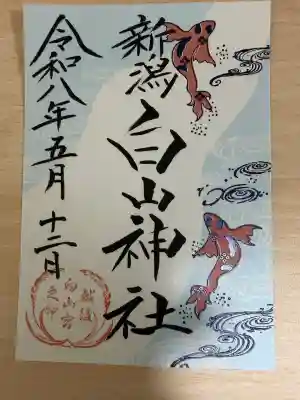 新潟
白山神社
令和八年五月十二日
越後
白山宮
之印